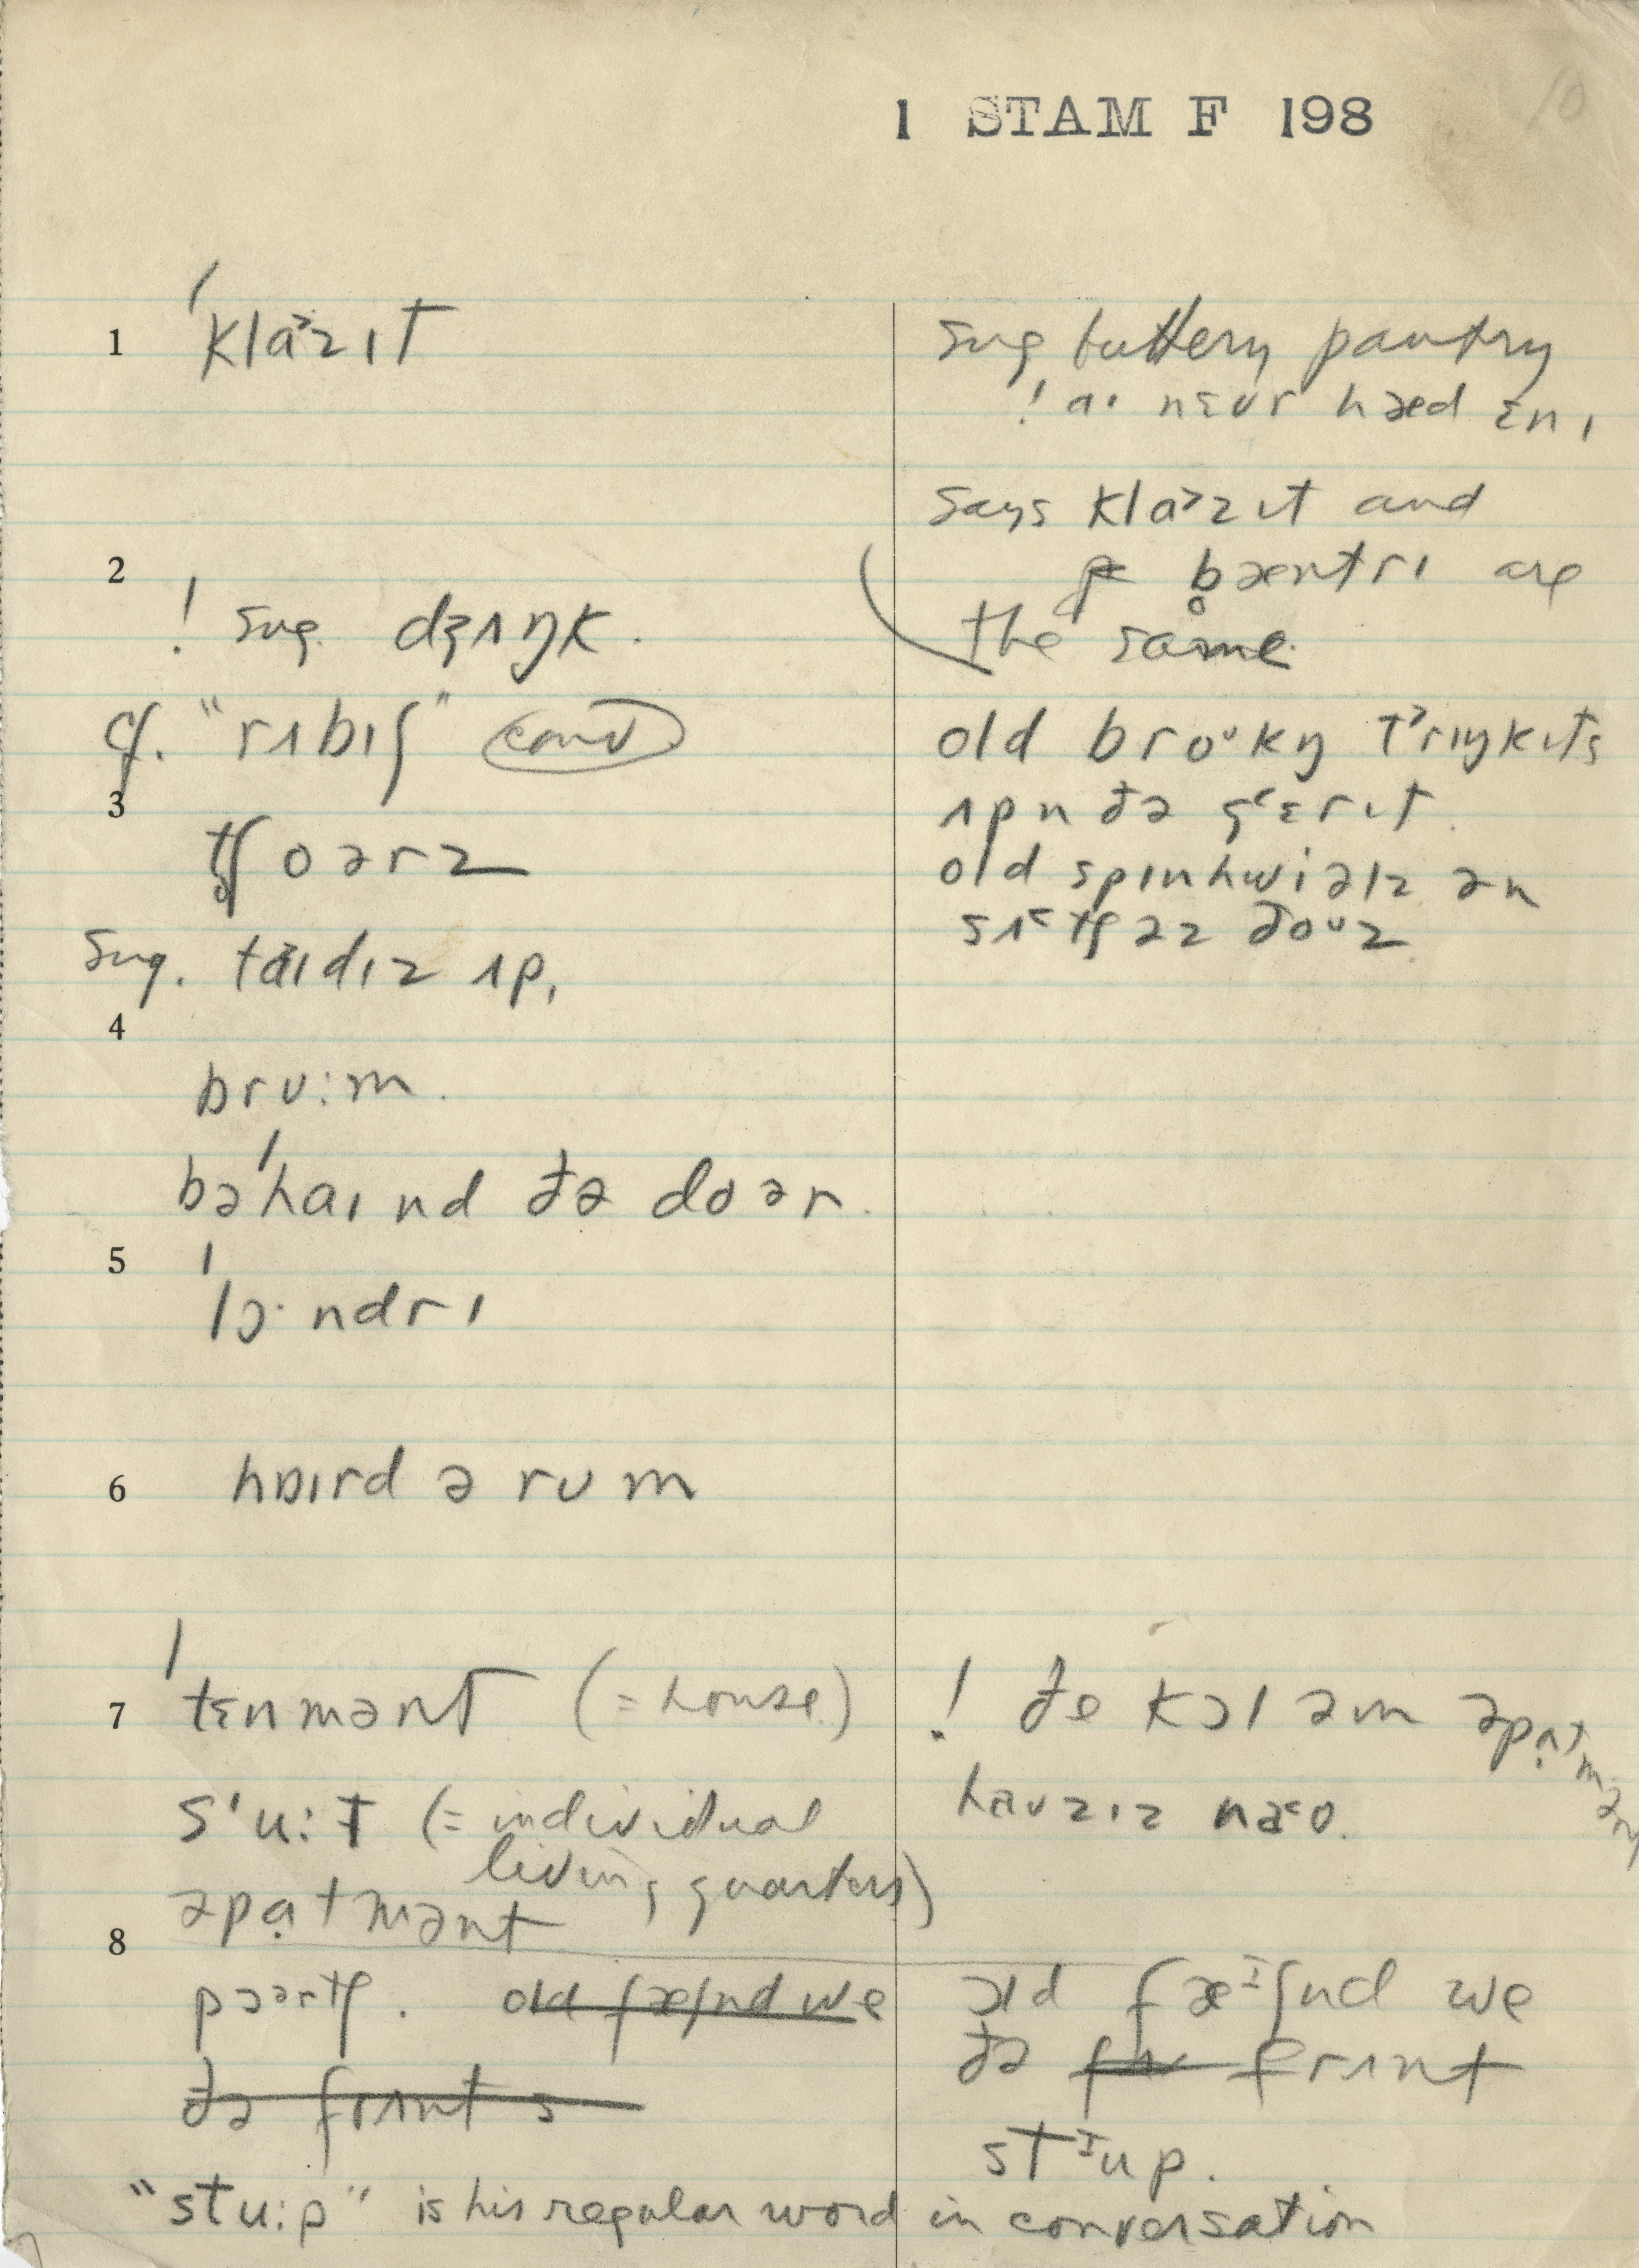 1 STAM F 198
10
1 ˈklɑ˃zɪt
sug buttery pantry
! aˑ nɛvr hæd ɛnɪ
says klɑ˃zɪt and
b̥æntrɪ are
the same
2
! sug. dʒʌŋk.
cf. "rʌbɪʃ" conv
old broᴜkŋ t˃rɪŋkɪts
ʌpn ðə gɛrɪt.
old spɪnhwiəlz ən
sʌ˂tʃəz ðoᴜz.
3
tʃoərz
sug. tɑ˃ɪdɪz ʌp,
4
brᴜːm.
bəˈhaɪnd ðə doər.
5
ˈlɔˑndrɪ
6 hɒɪrd ə rᴜm
7 ˈtɛnmənt (= house)
! ðe kɔl əm əpɑ̣tmənt
haᴜzɪz na˂ᴜ.
sˈuːt (= individual
living quarters)
əpɑ̣tmənt
8
pɔərtʃ. old fæʃnd we
ðə frʌnt s
ɔld fæᶦʃnd we
ðə frʌnt
stᶦup.
"stuːp" is his regular word in conversation